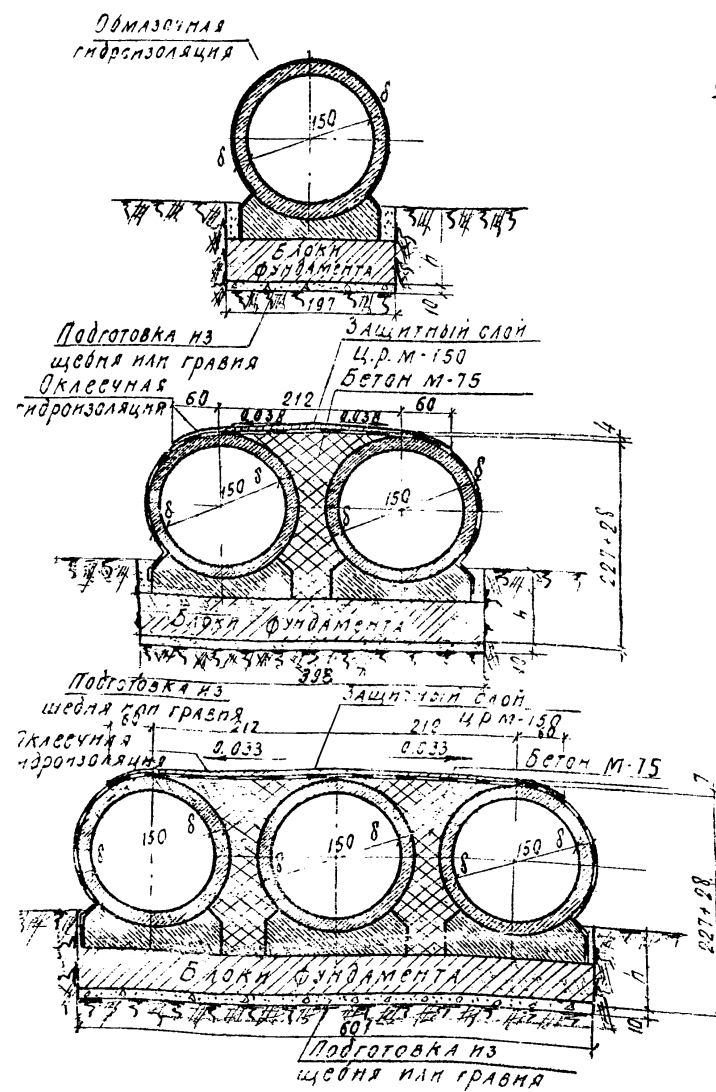 Обмазочная
гидроизоляция
δ
150
δ
Блоки
фундамента
h
10
197
Подготовка из
щебня или гравия
Защитный слой
Ц.Р. М-150
Бетон М-75
Оклеечная
гидроизоляция
60
212
60
0.038
0.038
4
150
δ
δ
150
δ
δ
227+2δ
Блоки фундамента
h
10
398
Подготовка из
щебня или гравия
Защитный слой
Ц.Р М-150
60
212
60
Оклеечная
гидроизоляция
0.033
0.033
Бетон М-75
7
150
δ
δ
150
δ
δ
150
δ
δ
227+2δ
Блоки фундамента
h
10
607
Подготовка из
щебня или гравия